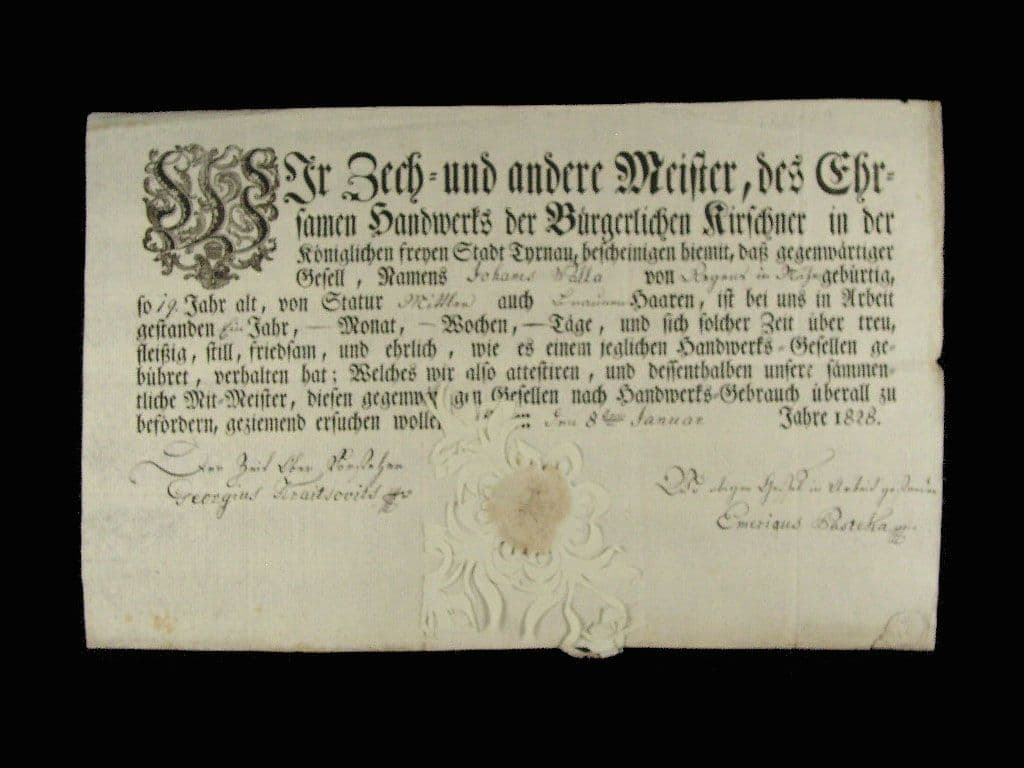 WIr Zech- und andere Meister, des Ehr-
samen Handwerks der Bürgerlichen Kirschner in der
Königlichen freyen Stadt Tyrnau, bescheinigen hiemit, daß gegenwärtiger
Gesell, Namens Johanes von in gebürtig,
so 19. Jahr alt, von Statur Mittler auch Braunen Haaren, ist bei uns in Arbeit
gestanden Jahr, — Monat, — Wochen, — Täge, und sich solcher Zeit über treu,
fleißig, still, friedsam, und ehrlich, wie es einem jeglichen Handwerks-Gesellen ge-
bühret, verhalten hat; Welches wir also attestiren, und dessenthalben unsere sämmen-
tliche Mit-Meister, diesen gegenwä gen Gesellen nach Handwerks-Gebrauch überall zu
befördern, geziemend ersuchen wolle den 8ten Januar Jahre 1828.
Der Zeit Ober Vorsteher
Georgius
Wo obiger Gesell in Arbeit gestanden
Emericus